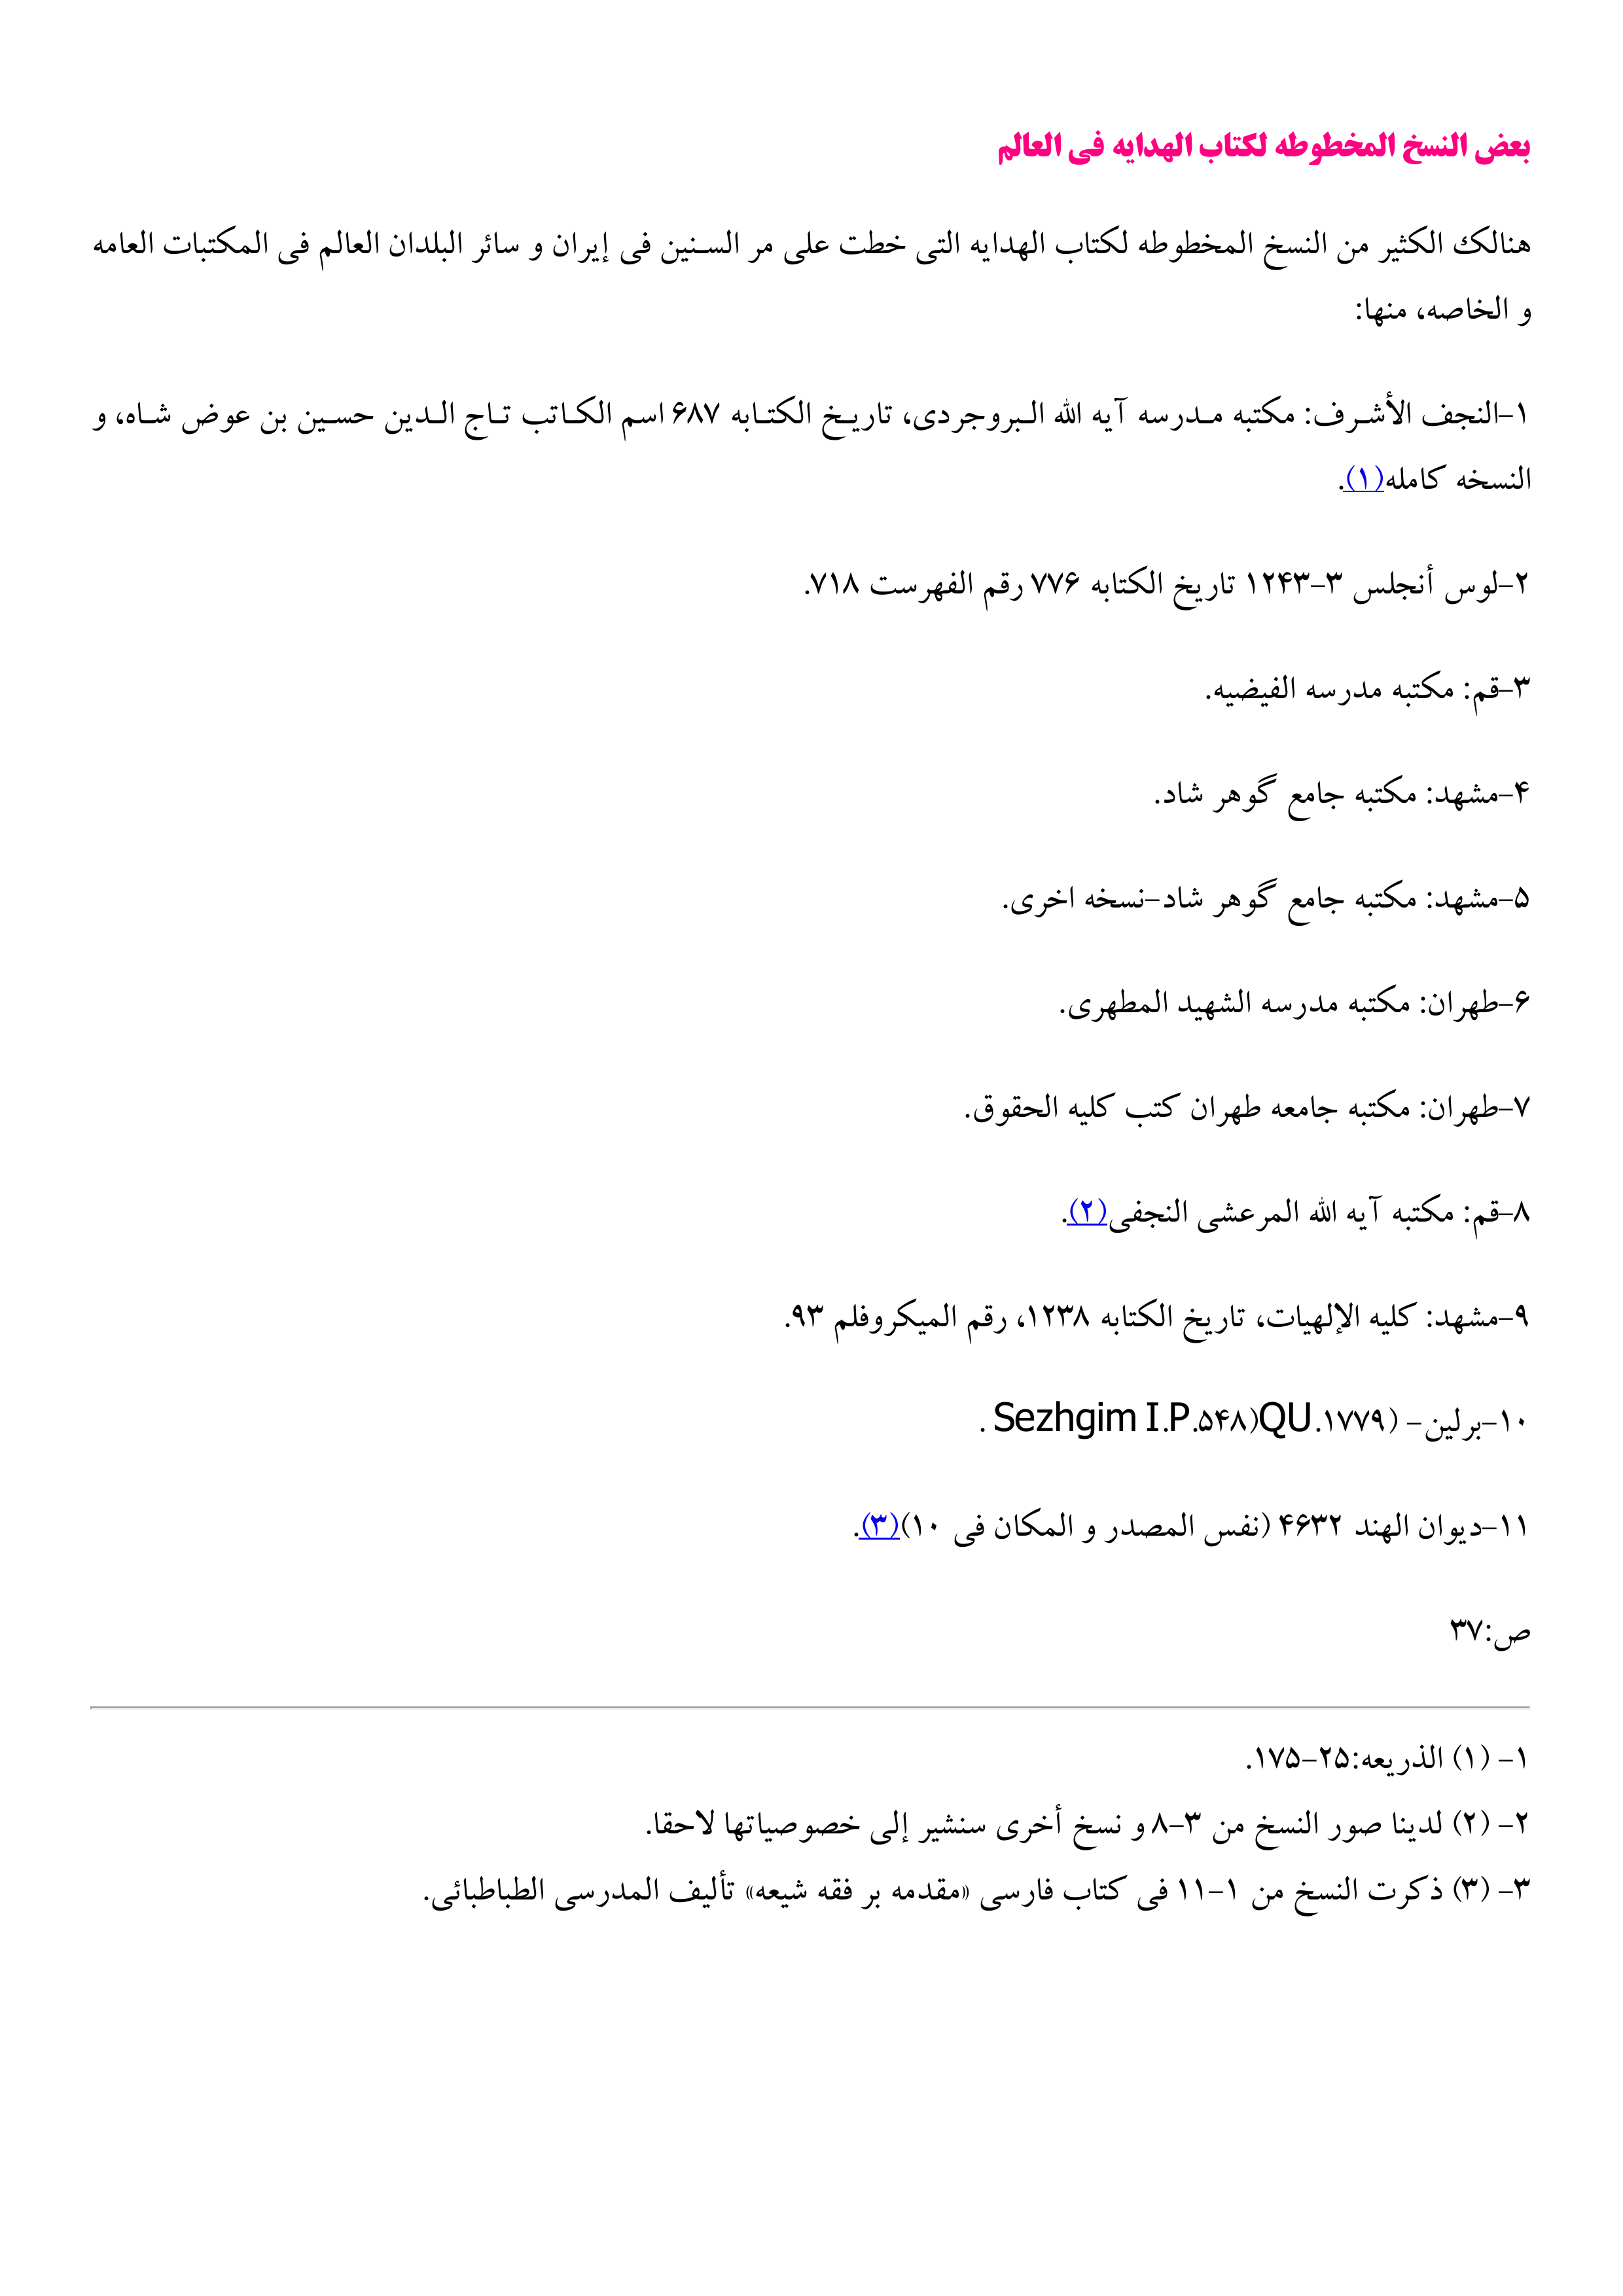 بعض النسخ المخطوطه لكتاب الهدايه فی العالم
هنالك الكثير من النسخ المخطوطه لكتاب الهدايه التی خطت على مر السنين فی إيران و سائر البلدان العالم فی المكتبات العامه
و الخاصه، منها:
۱-النجف الأشرف: مكتبه مدرسه آيه الله البروجردی، تاريخ الكتابه ۶۸۷ اسم الكاتب تاج الدين حسين بن عوض شاه، و
النسخه كامله(۱).
۲-لوس أنجلس ۳-۱۲۴۳ تاريخ الكتابه ۷۷۶ رقم الفهرست ۷۱۸.
۳-قم: مكتبه مدرسه الفيضيه.
۴-مشهد: مكتبه جامع گوهر شاد.
۵-مشهد: مكتبه جامع گوهر شاد-نسخه اخری.
۶-طهران: مكتبه مدرسه الشهيد المطهری.
۷-طهران: مكتبه جامعه طهران كتب كليه الحقوق.
۸-قم: مكتبه آيه الله المرعشی النجفی(۲).
۹-مشهد: كليه الإلهيات، تاريخ الكتابه ۱۲۳۸، رقم الميكروفلم ۹۳.
۱۰-برلين- (۱۷۷۹.QU)۵۴۸.Sezhgim I.P .
۱۱-ديوان الهند ۴۶۳۲ (نفس المصدر و المكان فی ۱۰)(۳).
ص:۳۷
۱- (۱) الذريعه:۲۵-۱۷۵.
۲- (۲) لدينا صور النسخ من ۳-۸ و نسخ أخری سنشير إلى خصوصياتها لاحقا.
۳- (۳) ذكرت النسخ من ۱-۱۱ فی كتاب فارسی «مقدمه بر فقه شيعه» تأليف المدرسی الطباطبائی.